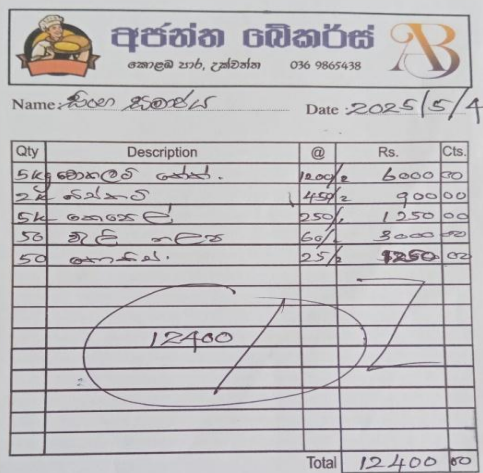 අජන්ත බේකර්ස්
කොළඹ පාර, උක්වත්ත 036 9865438
AB
Name: සිංහ සමාජය Date : 2025/5/4
Qty Description @ Rs. Cts.
5kg 1200/= 6000 00
2k බිස්කට් 450/= 900 00
5k කෙසෙල් 250/= 1250 00
50 60/= 3000 00
50 25/= 1250 00
12400
Total 12400 00